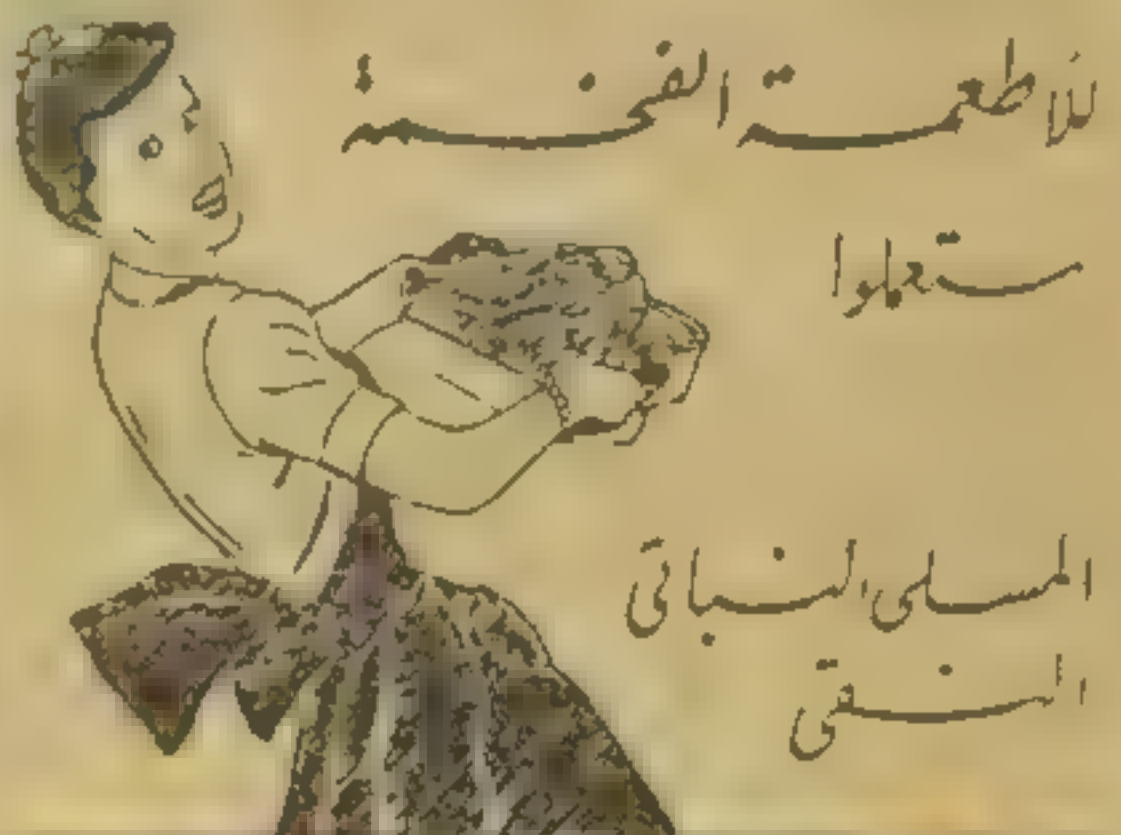 للاطعمة الفخمة
استعملوا
المسلى النباتى
النقى